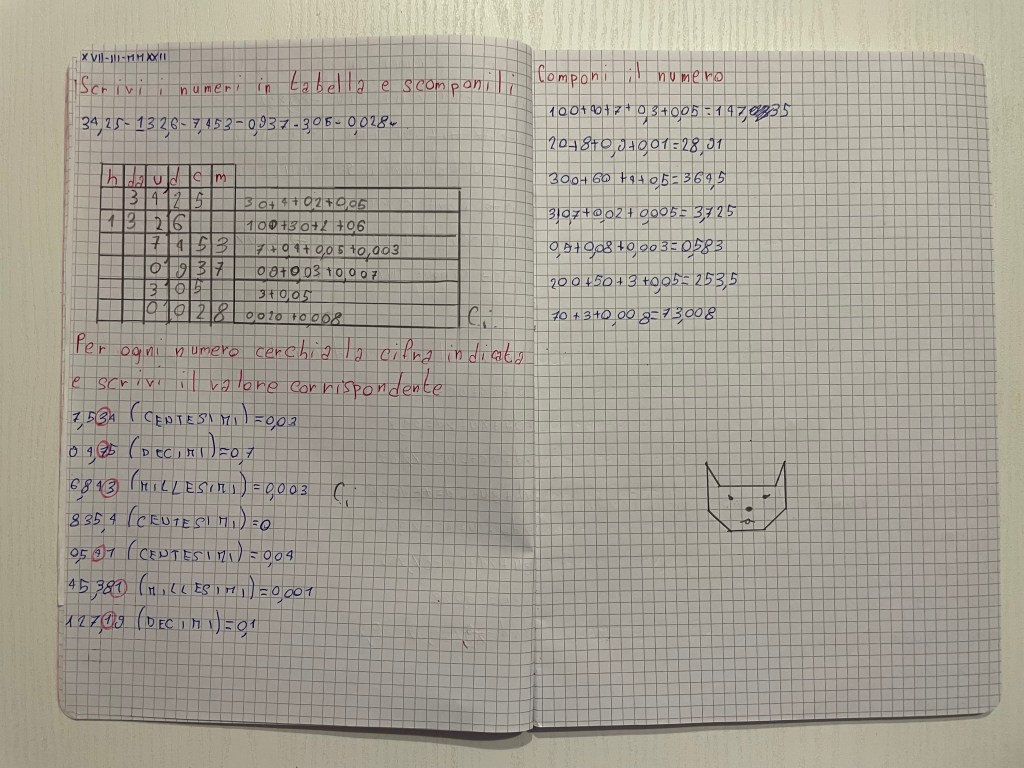 XVII-III-MMXXII
Scrivi i numeri in tabella e scomponili
34,25-132,6-7,453-0,937-3,05-0,028
h da u d c m
3 4 2 5 30+4+0,2+0,05
1 3 2 6 100+30+2+0,6
7 4 5 3 7+0,4+0,05+0,003
0 9 3 7 0,9+0,03+0,007
3 0 5 3+0,05
0 0 2 8 0,020+0,008
C.
Per ogni numero cerchia la cifra indicata
e scrivi il valore corrispondente
7,534 (CENTESIMI)=0,03
(DECIMI)=0,7
6,843 (MILLESIMI)=0,003 C.
835,4 (CENTESIMI)=0
0,541 (CENTESIMI)=0,04
45,381 (MILLESIMI)=0,001
127,19 (DECIMI)=0,1
Componi il numero
100+40+7+0,3+0,05=147,35
20+8+0,2+0,01=28,21
300+60+4+0,5=364,5
3+0,7+0,02+0,005=3,725
0,5+0,08+0,003=0,583
200+50+3+0,05=253,5
70+3+0,008=73,008